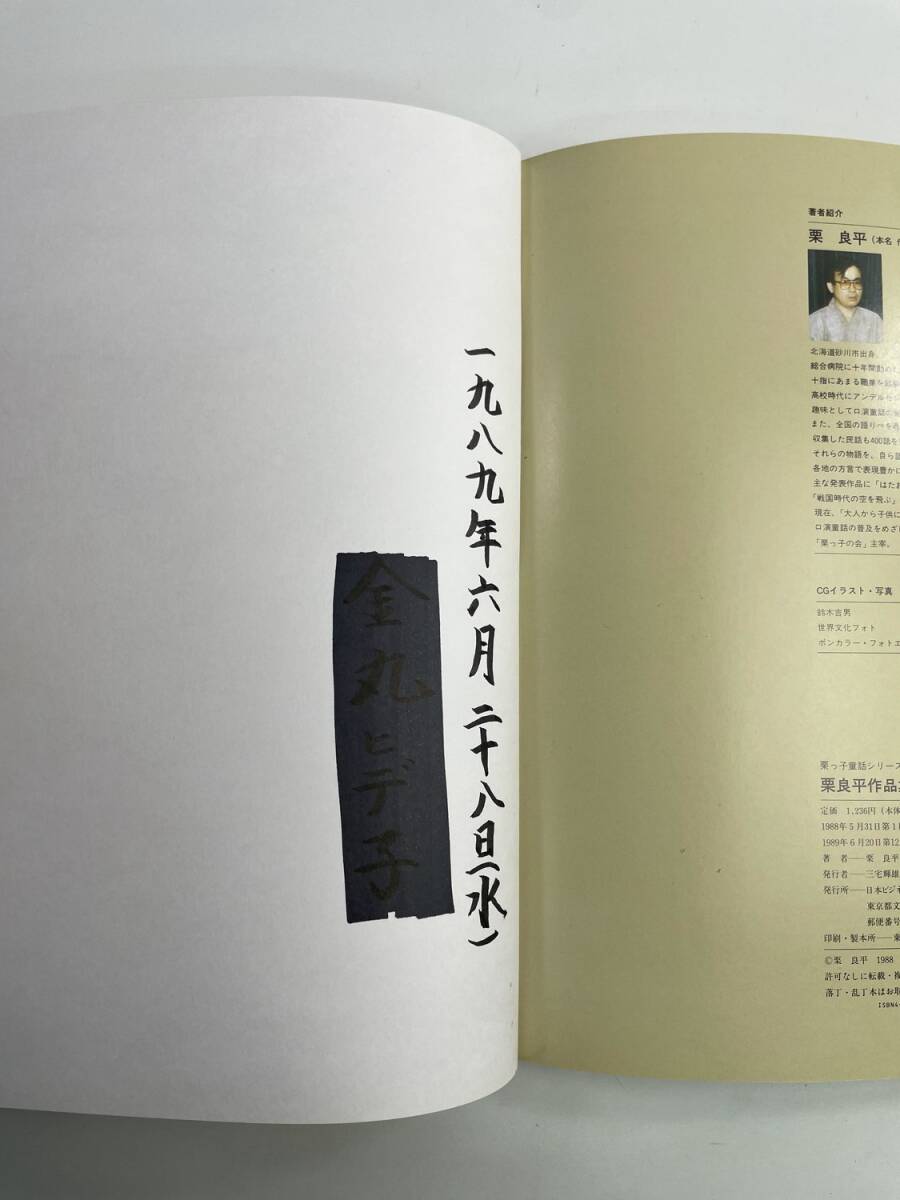 一九八九年六月二十八日(水)
金丸ヒデ子
著者紹介
栗 良平(本名
北海道砂川市出身。
総合病院に十年間勤め
十指にあまる職業を
高校時代にアンデル
趣味として口演童話の
また、全国の語りべを
収集した民話も400話を
それらの物語を、自ら
各地の方言で表現豊かに
主な発表作品に「はたお
「戦国時代の空を飛ぶ」
現在、「大人から子供に
口演童話の普及をめざし
「栗っ子の会」主宰。
CGイラスト・写真
鈴木吉男
世界文化フォト
ボンカラー・フォトエ
栗っ子童話シリーズ
栗良平作品
定価 1,236円(本体
1988年5月31日第1
1989年6月20日第12
著 者──栗 良平
発行者──三宅輝雄
発行所──日本ビジネ
東京都文
郵便番号
印刷・製本所──
©栗 良平 1988
許可なしに転載・複
落丁・乱丁本はお取
ISBN4-